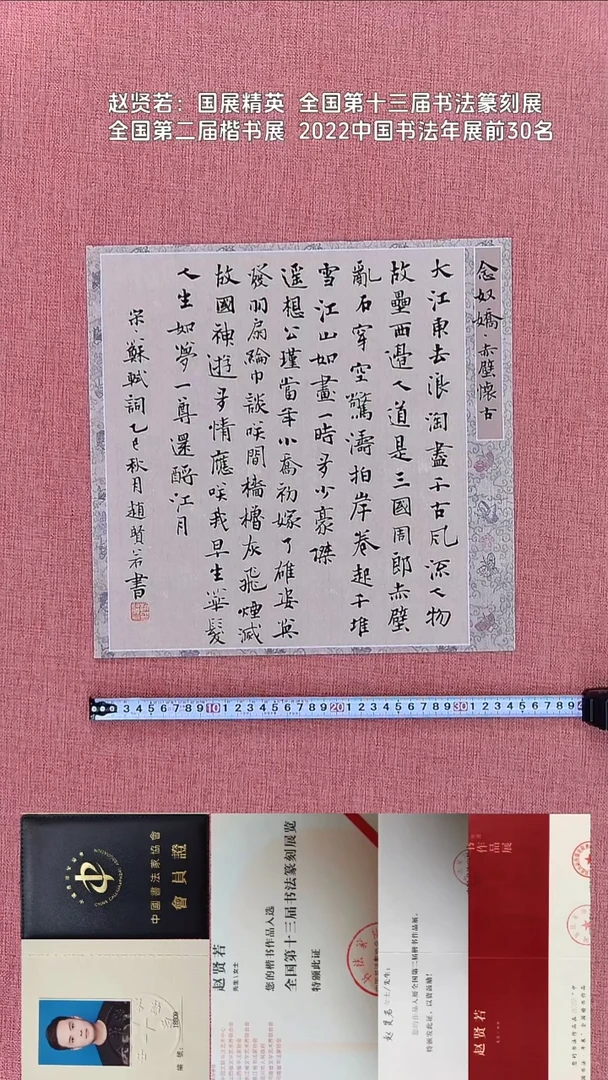 赵贤若：国展精英 全国第十三届书法篆刻展
全国第二届楷书展 2022中国书法年展前30名
念奴嬌·赤壁懷古
大江東去浪淘盡千古风流人物
故壘西邊人道是三國周郎赤壁
亂石穿空驚濤拍岸卷起千堆
雪江山如畫一時多少豪傑
遥想公瑾當年小喬初嫁了雄姿英
發羽扇綸巾談咲間檣櫓灰飛煙滅
故國神遊多情應咲我早生華髮
人生如夢一尊還酹江月
宋蘇軾詞乙巳秋月趙賢若書
3 4 5 6 7 8 9 10 1 2 3 4 5 6 7 8 9 20 1 2 3 4 5 6 7 8 9 30 1 2 3 4 5 6 7 8 9
中國書法家協會
會員證
編號：
赵贤若
先生\女士
您的楷书作品入选
全国第十三届书法篆刻展览
特颁此证
先生：
您的作品入展全国第二届楷书作品展。
特颁发此证，以资鼓励！
书作品展
赵贤若